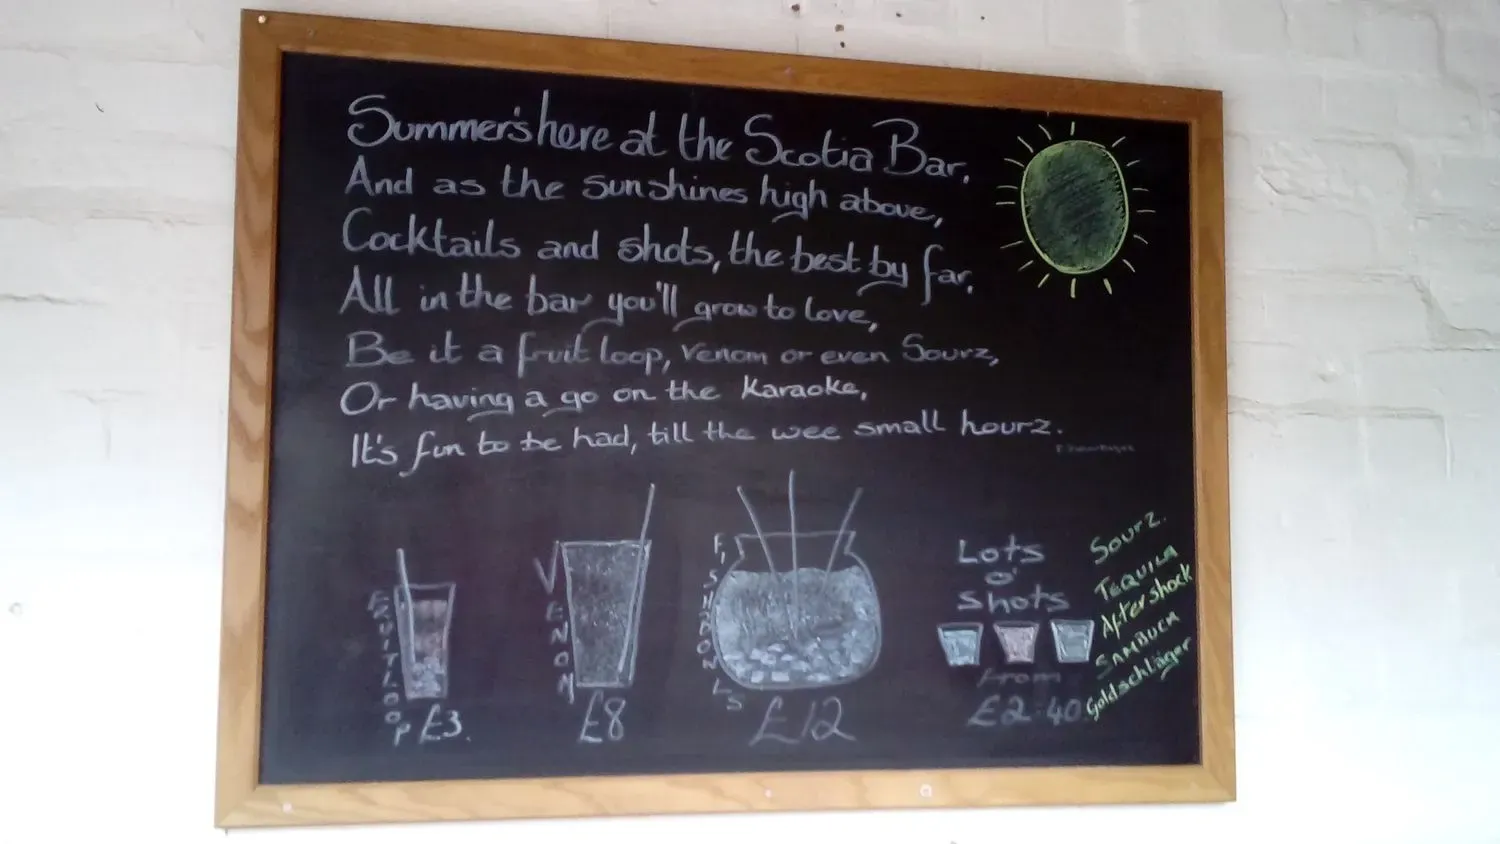 Summer's here at the Scotia Bar,
And as the sunshines high above,
Cocktails and shots, the best by far,
All in the bar you'll grow to love,
Be it a fruit loop, venom or even Sourz,
Or having a go on the Karaoke,
It's fun to be had, till the wee small hourz.
FRUITLOOP
£3.
VENOM
£8
FISHBOWLS
£12
Lots
o'
Shots
from
£2.40
Sourz.
TEQUILA
Aftershock
SAMBUCA
Goldschläger